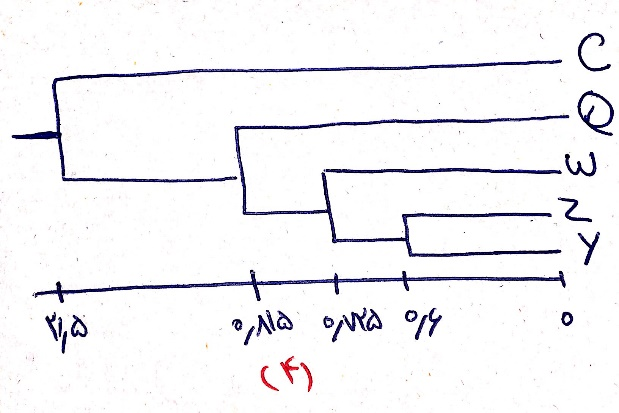 C
Q
W
Z
Y
۰,۸۱۵ ۰,۷۲۵ ۰,۶ ۰
(۴)